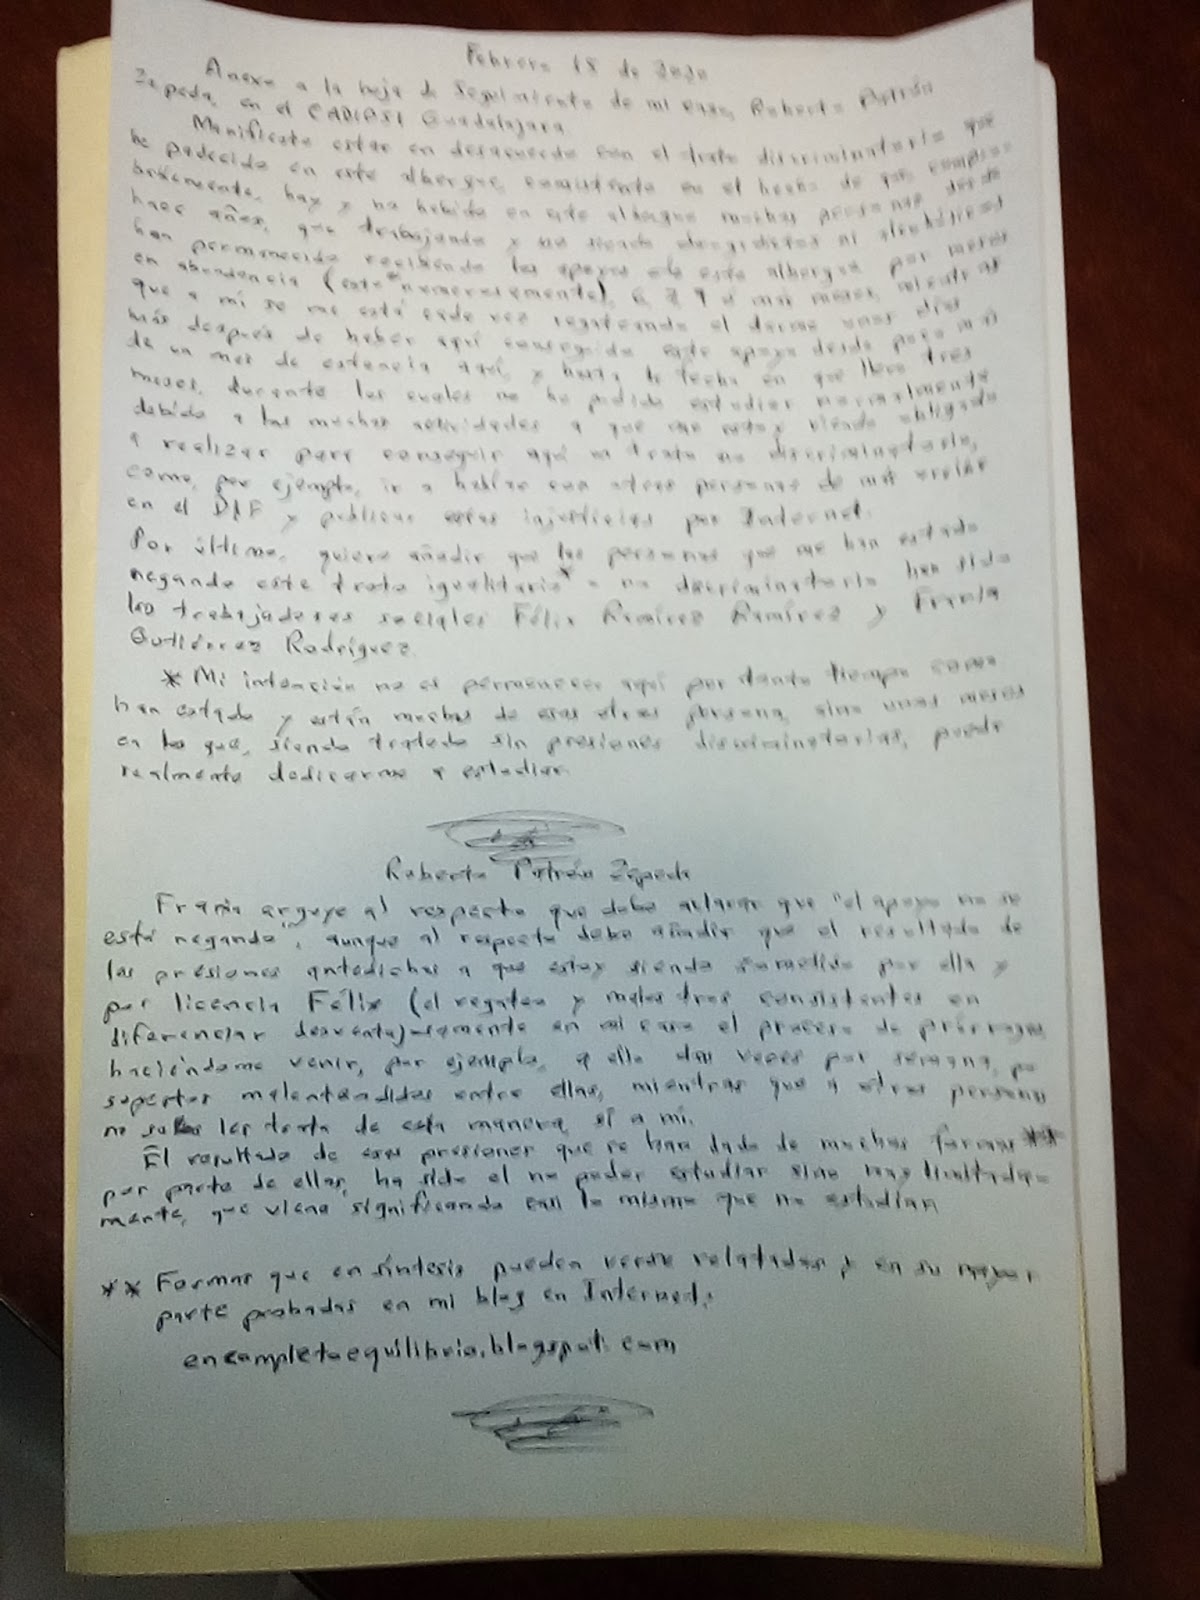 Febrero 15 de 2020
Anexo a la hoja de seguimiento de mi caso, Roberto Patrón
Zepeda, en el CADIPSI Guadalajara.
Manifiesto estar en desacuerdo con el trato discriminatorio que
he padecido en este albergue, consistente en el hecho de que,
hay y ha habido en este albergue muchas personas desde
hace años, que trabajando y no siendo drogadictos ni alcohólicos
han permanecido recibiendo los apoyos de este albergue por meses
en abundancia (esto numerosamente), 6, 7, 9 o más meses, mientras
que a mí se me está cada vez regateando el darme unos días
más después de haber aquí conseguido este apoyo desde poco más
de un mes de estancia aquí, y hasta la fecha en que llevo tres
meses, durante los cuales no he podido estudiar normalmente
debido a las muchas actividades a que me estoy viendo obligado
a realizar para conseguir aquí un trato no discriminatorio,
como, por ejemplo, ir a hablar con otras personas de
en el DIF y publicar estas injusticias por Internet.
Por último, quiero añadir que las personas que me han estado
negando este trato igualitario* o no discriminatorio han sido
los trabajadores sociales Félix Ramírez Ramírez y Frania
Gutiérrez Rodríguez.
* Mi intención no es permanecer aquí por tanto tiempo como
han estado y están muchas de esas otras persona, sino unos meses
en los que, siendo tratado sin presiones discriminatorias, pueda
realmente dedicarme a estudiar.
Roberto Patrón Zepeda
Frania arguye al respecto que debo aclarar que "el apoyo no se
está negando", aunque al respecto debo añadir que el resultado de
las presiones antedichas a que estoy siendo sometido por ella y
por licencia Félix (el regateo y consistentes en
diferenciar desventajosamente en mi caso el proceso de prórrogas,
haciéndome venir, por ejemplo, a ello dos veces por semana, por
supestos malentendidos entre ellas, mientras que a otras personas
no les trata de esta manera, sí a mí.
El resultado de esas presiones que se han dado de muchas formas **
por parte de ellas, ha sido el no poder estudiar sino muy limitada-
mente, que viene significando casi lo mismo que no estudiar.
** Formas que en síntesis pueden verse relatadas y en su mayor
parte probadas en mi blog en Internet:
encompletoequilibrio.blogspot.com